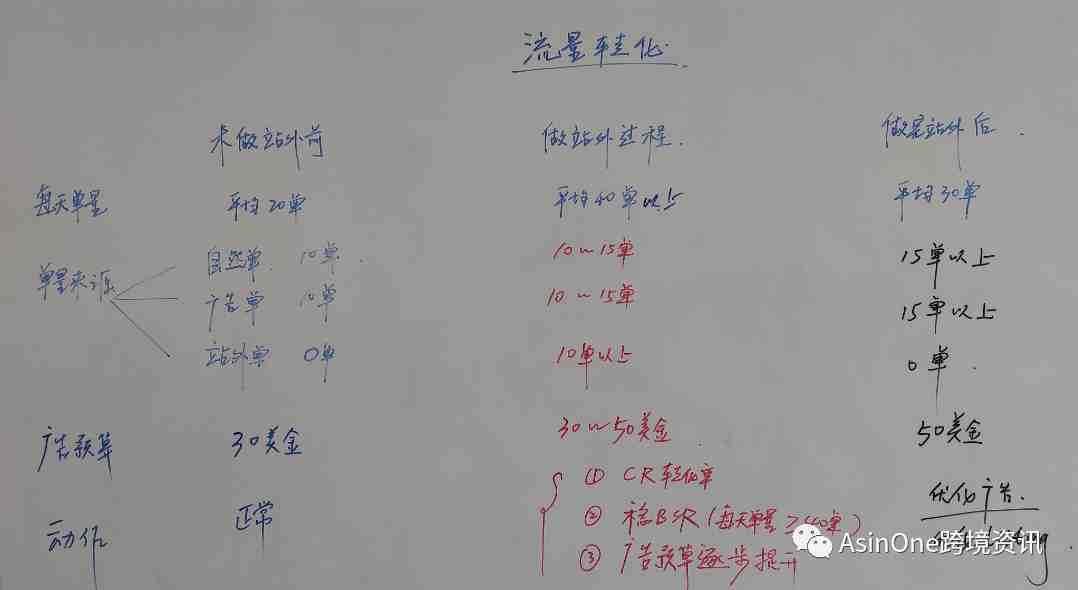 流量转化.
未做站外前 做站外过程. 做完站外后.
每天单量 平均20单 平均40单以上 平均30单
单量来源 自然单 10单. 10~15单 15单以上
广告单 10单 10~15单 15单以上
站外单 0单 10单以上 0单.
广告预算 30美金 30~50美金. 50美金
动作 正常 ① CR转化率 优化广告.
② 稳BSR(每天单量≥40单)
③ 广告预算逐步提升
AsinOne跨境资讯